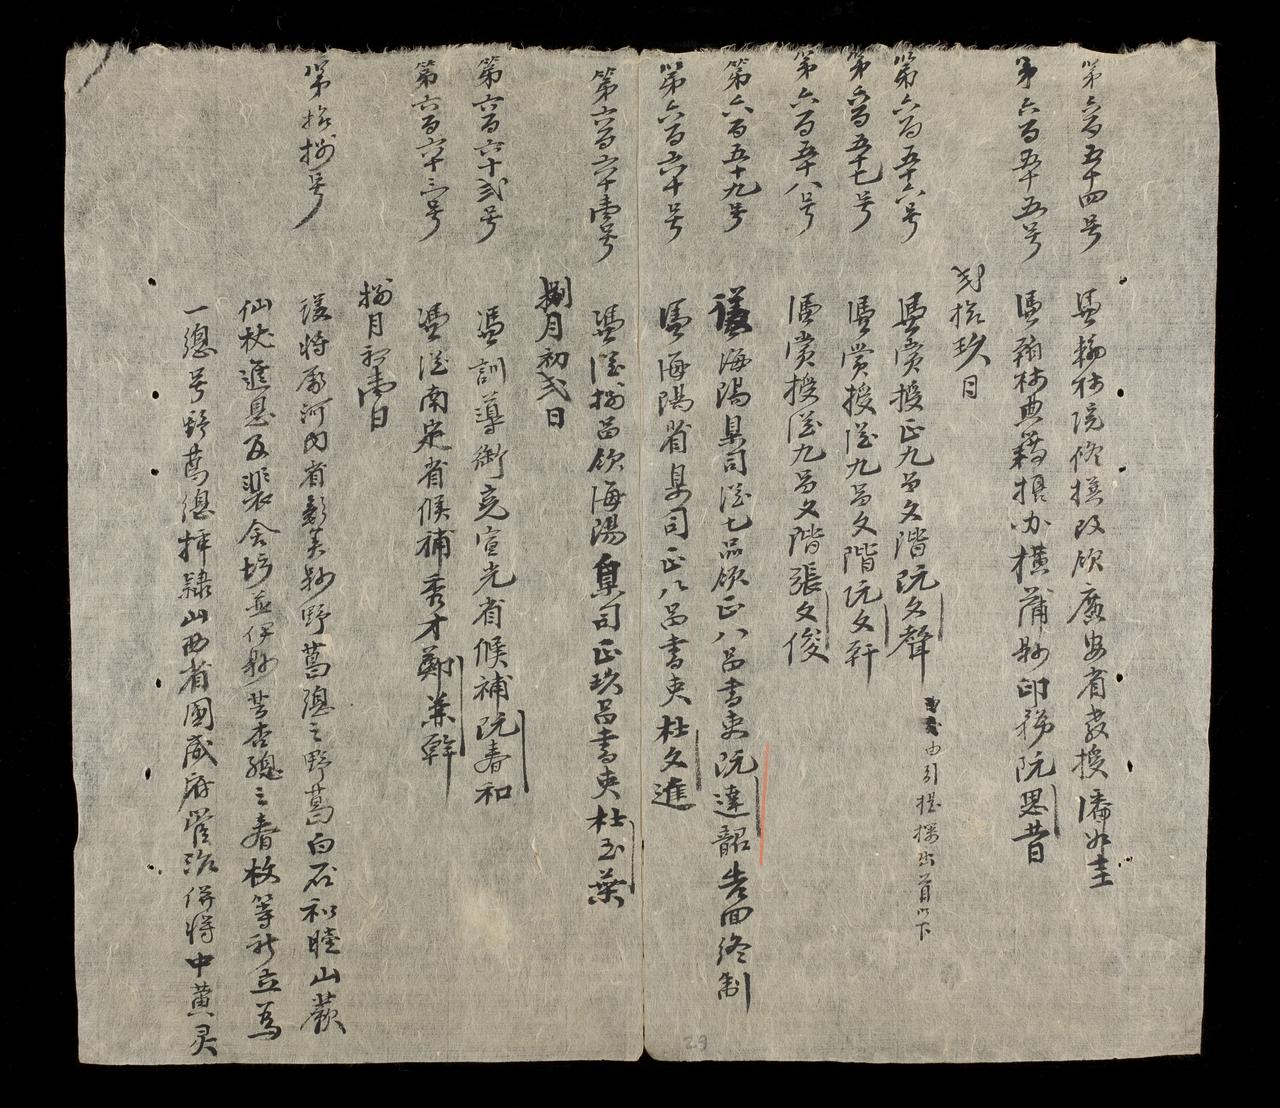 第六百五十四号
憑翰林院修撰改領廣安省教授潘如圭
第六百五十五号
憑翰林典籍攝办橫蒲縣印務阮思昔
弍拾玖日
第六百五十六号
憑賞授正九品文階阮文聲
由引提探出首以下
第六百五十七号
憑賞授從九品文階阮文軒
第六百五十八号
憑賞授從九品文階張文俊
第六百五十九号
議海陽臬司從七品領正八品書吏阮達韶告回終制
第六百六十号
憑海陽省臬司正八品書吏杜文進
第六百六十壹号
憑從捌品領海陽臬司正玖品書吏杜玉葉
捌月初弍日
第六百六十弍号
憑訓導銜充宣光省候補阮春和
第六百六十三号
憑從南定省候補秀才鄭兼幹
捌月初壹日
第拾捌号
議將原河內省彰美縣野萬總之野萬白石和睦山蕨
仙杖進恩瓦裴舍圬並伊縣苦杏總之春枚等社立為
一總号野萬總拝隸山西省國威府管治併將中黄灵